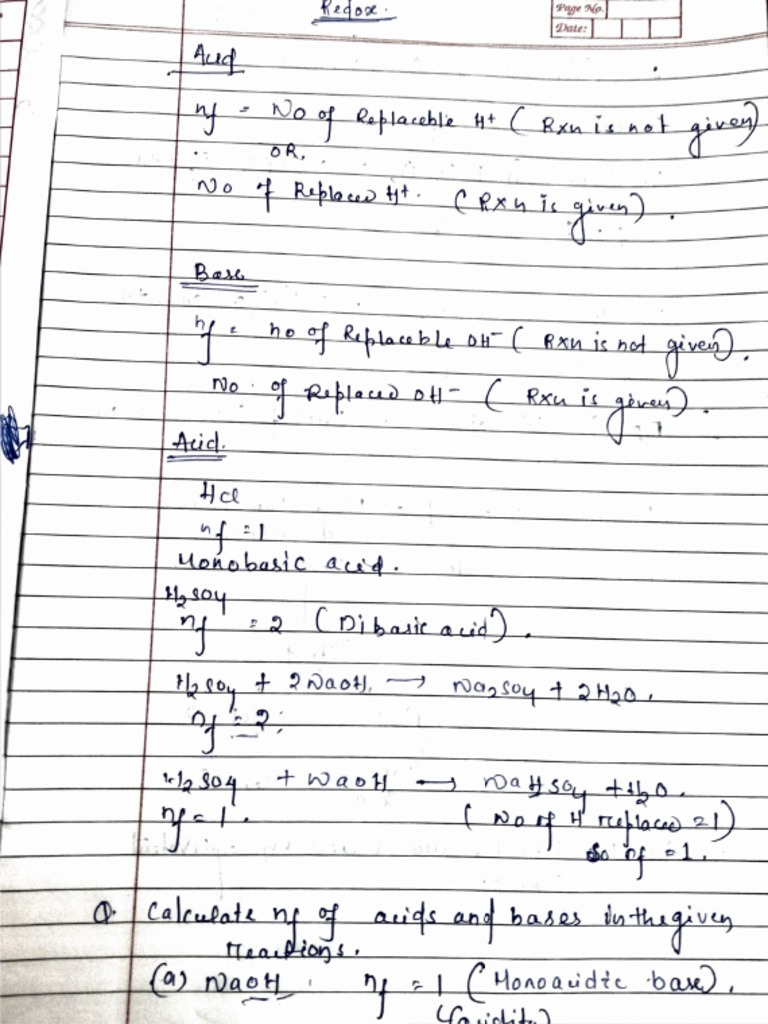 Redox.
Page No.
Date:
Acid
nf = No of Replaceble H+ ( Rxn is not given)
OR,
No of Replaced H+. ( Rxn is given).
Base
nf = no of Replaceble OH- ( Rxn is not given).
No. of Replaced OH- ( Rxn is given).
Acid.
HCl
nf = 1
Monobasic acid.
H2SO4
nf = 2 (Dibasic acid).
H2SO4 + 2NaOH. → Na2SO4 + 2H2O.
nf = 2.
H2SO4 + NaOH → NaHSO4 + H2O.
nf = 1. ( No of H replaced = 1)
So nf = 1.
Q. Calculate nf of acids and bases in the given
reactions.
(a) NaOH. nf = 1 (Monoacidic base).
(acidity)